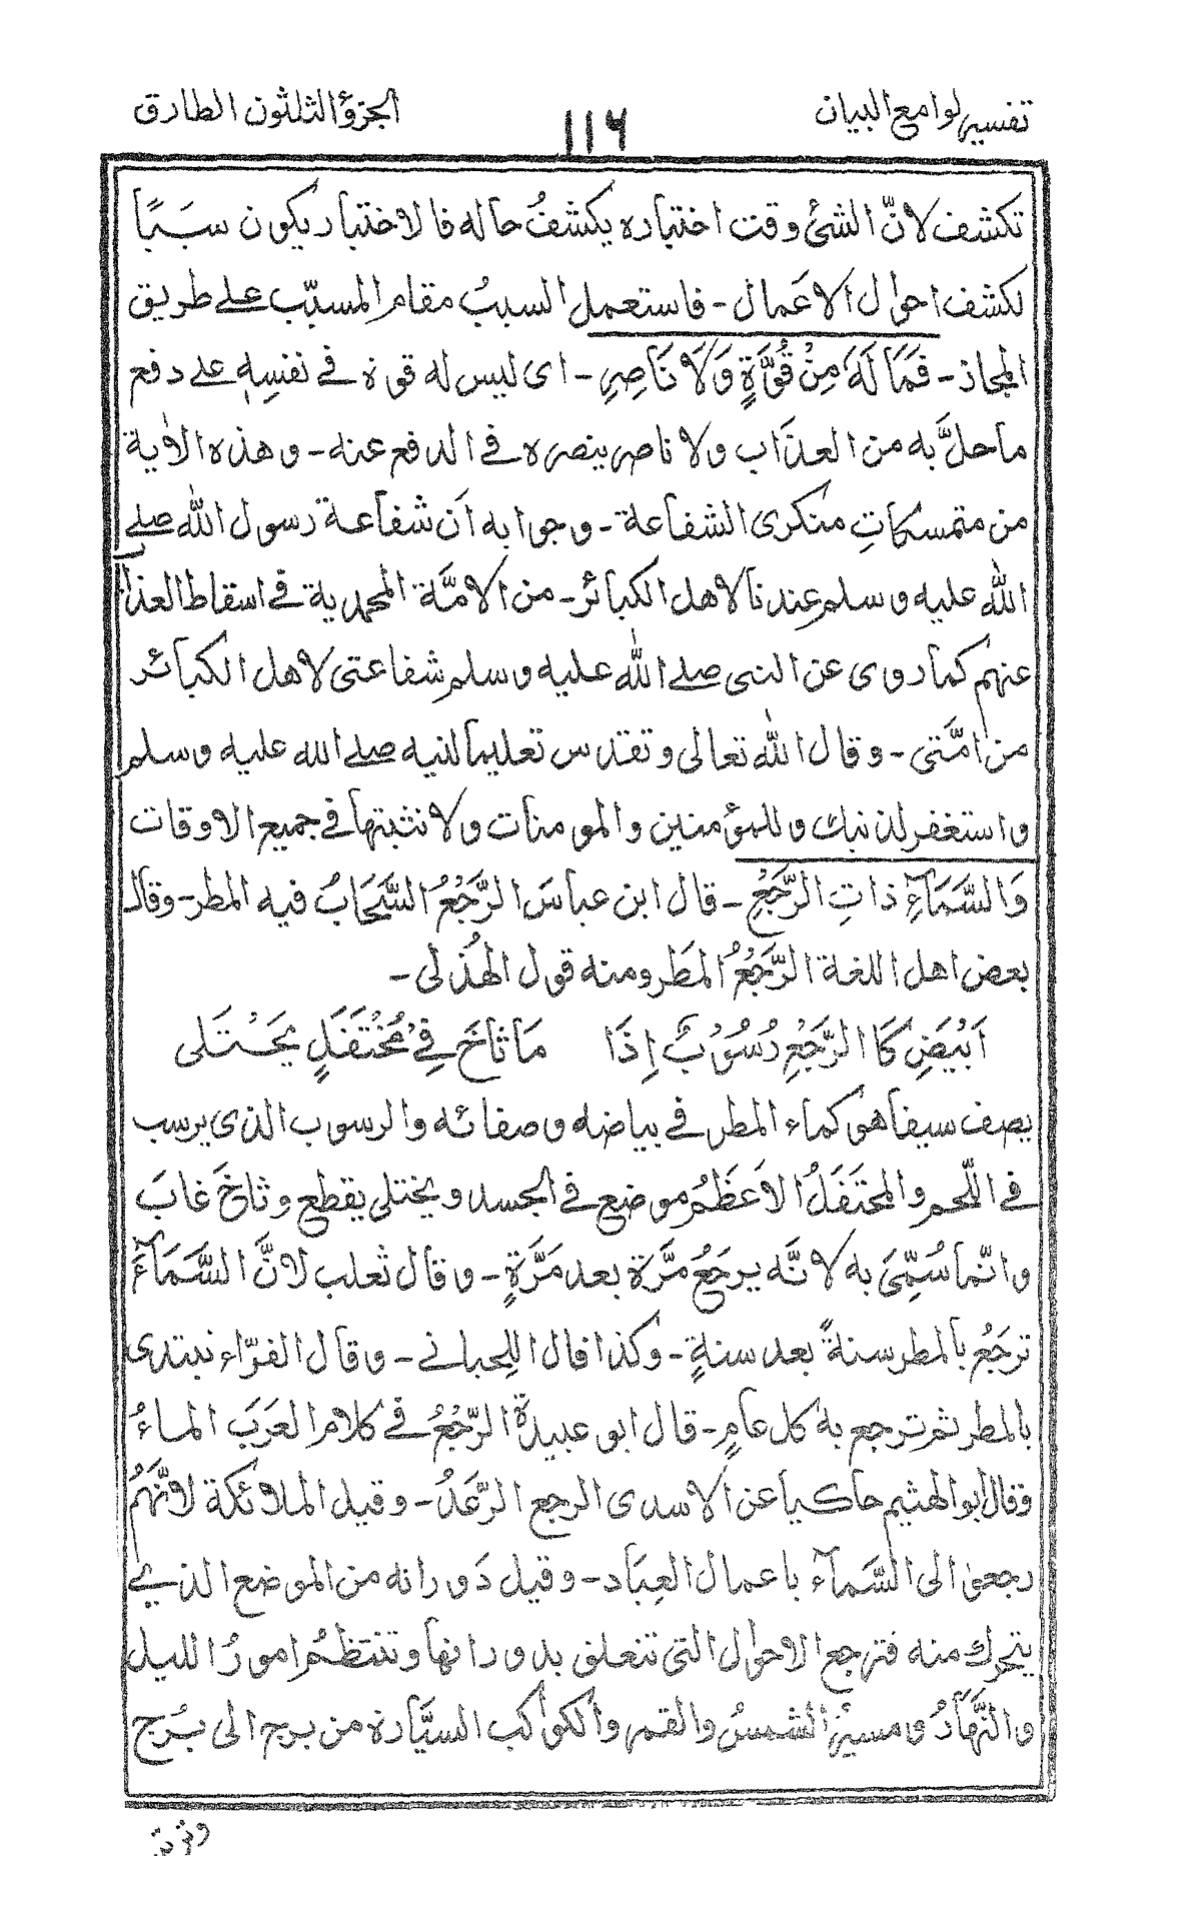 تفسير لوامع البيان
١١٦
الجزؤ الثلثون الطارق
تكشف لانّ الشئ وقت اختباره يكشفُ حاله فالاختبار يكون سَبَبًا
لكشف احوال الاَعمال - فاستعمل السببُ مقام المسبّب علے طريق
المجاز - فَمَا لَهٗ مِنْ قُوَّةٍ وَّلَا نَاصِرٍ - اى ليس له قوة فے نفسِهٖ علے دفع
ما حلَّ به من العذاب ولا ناصر ينصره فے الدفع عنه - وهذه الاٰية
من متمسكاتِ منكرى الشفاعة - وجوابه اَن شفاعة رسول اللّٰه صلے
اللّٰه عليه وسلم عندنا لاهل الكبائر - من الامّة المحمدية فے اسقاط العذاب
عنهم كما روى عن النبى صلے اللّٰه عليه وسلم شفاعتى لاهل الكبائر
من امّتى - وقال اللّٰه تعالى وتقدس تعليما لنبيه صلے الله عليه وسلم
واستغفر لذنبك وللمؤمنين والمومنات ولا نثبتها فے جميع الاوقات
وَالسَّمَآءِ ذاتِ الرَّجْعِ - قال ابن عباسَ الرَّجْعُ السَّحَابُ فيه المطر - وقال
بعض اهل اللغة الرَّجْعُ المَطر ومنه قول الهُذلى -
اَبْيَضِ كَا الرَّجْعِ رُسُوْبٌ اِذَا مَا ثَاخَ فِےْ مُحْتَفَلٍ يَخْتَلى
يصف سيفا هو كماء المطر فے بياضه وصفائه والرسوب الذى يرسب
فے اللّحم والمحتَفَلُ الاَعظَمُ موضع فے الجسد ويختلى يقطع وثاخَ غابَ
وانّما سُمِّىَ به لانَّه يرجَعُ مرَّة بعد مَرَّةٍ - وقال ثعلب لانَّ السَّمَآءَ
ترجَعُ بالمطر سنةً بعد سنةٍ - وكذا قال اللِحيانے - وقال الفرّاء تبتدى
بالمطر ثم ترجع بهٖ كل عامٍ - قال ابو عبيدة الرَّجْعُ فے كلام العَرَبَ الماءُ
وقال ابو الهثيم حاكيا عن الاسدى الرجع الرَّعَدُ - وقيل الملائكة لانَّهُمْ
رجعوا الى السَّمآء باعمال العِبَاد - وقيل دَورانه من الموضع الذے
يتحرك منه فترجع الاحوال التى تتعلق بدورانها وتنتظمُ امورُ الليل
والنَّهارُ ومسيرُ الشمسُ والقمر والكواكب السيّارة من برج الى بُرج